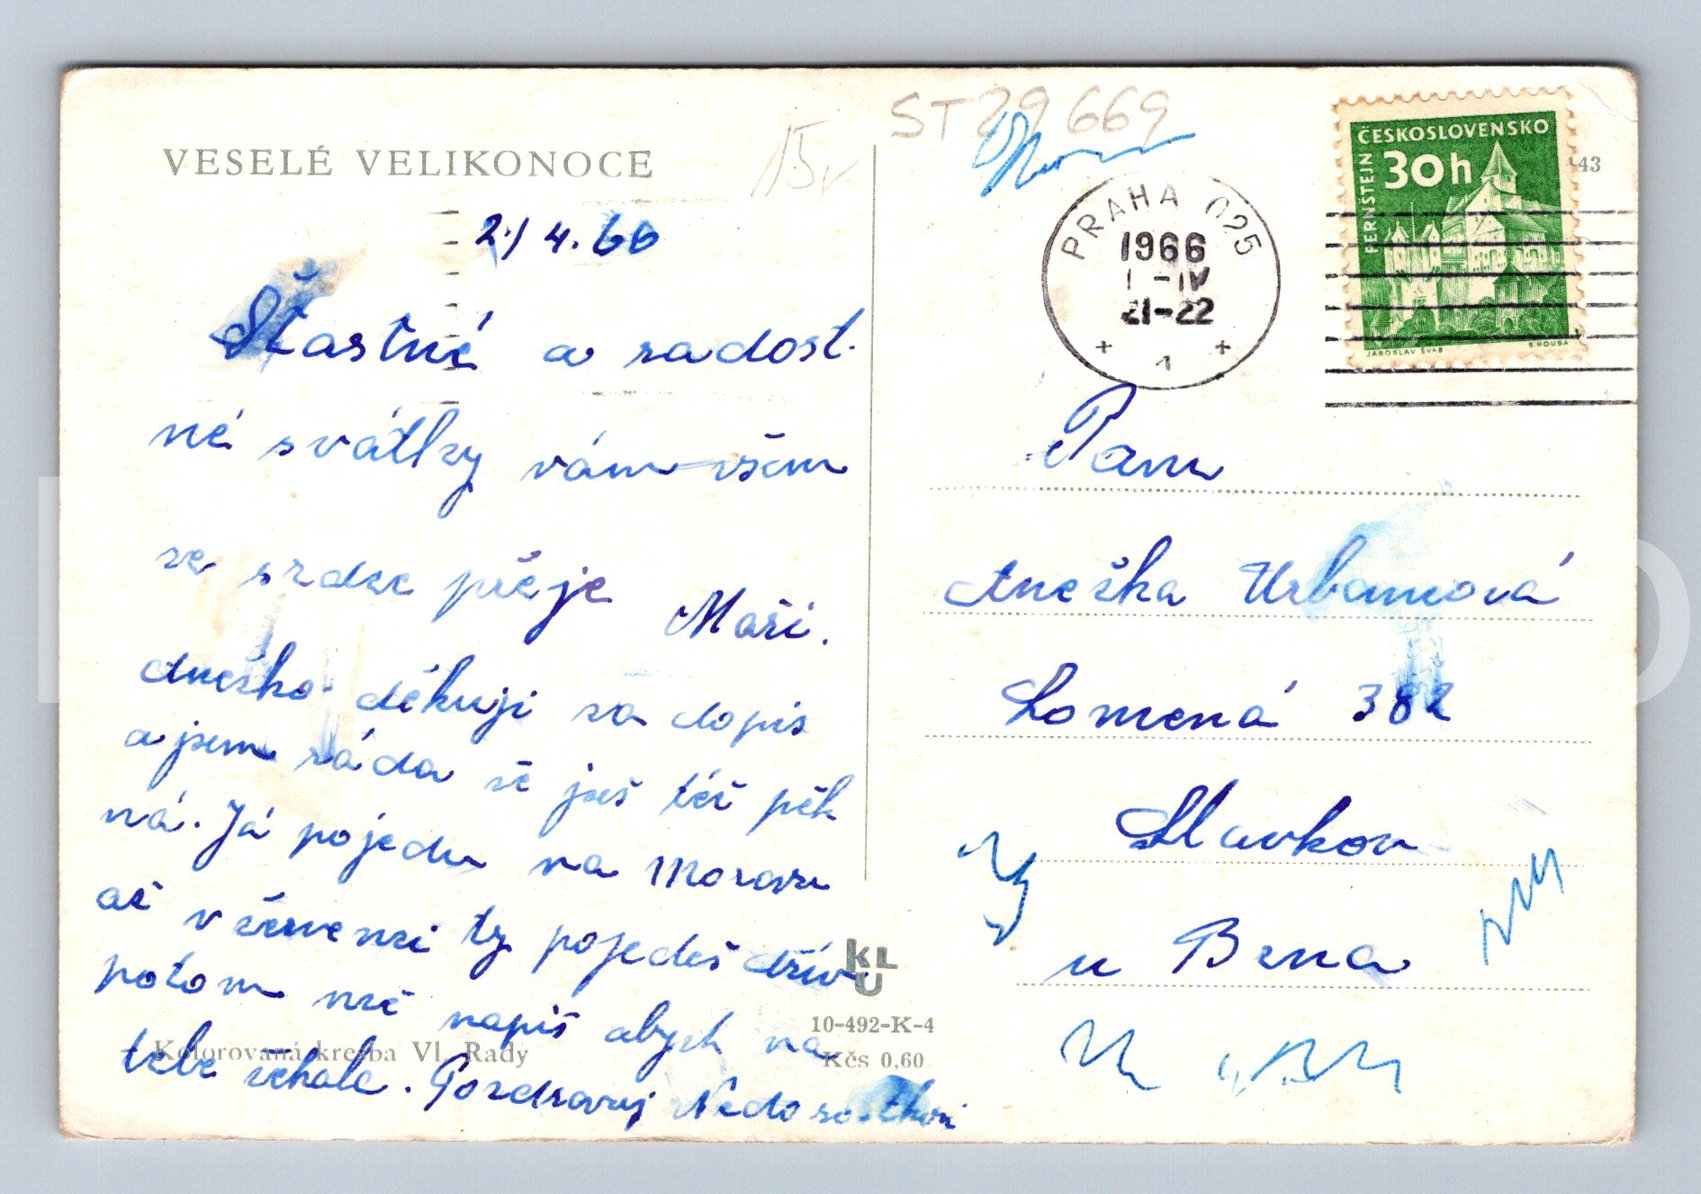 VESELÉ VELIKONOCE
2./4.66
Šťastné a radost-
né svátky vám všem
ze srdce přeje Maři.
Aneško děkuji za dopis
a jsem ráda že jseš též pěk
ná. Já pojedu na Moravu
až v červenci ty pojedeš dřív
potom mě napiš abych na
tebe čekala. Pozdravuj
Kolorovaná kresba Vl. Rady
KLU
10-492-K-4
Kčs 0,60
15,-
ST29669
PRAHA 025
1966
1-IV
21-22
1
ČESKOSLOVENSKO
30h
PERNŠTEJN
JAROSLAV ŠVÁB
B. HOUSA
43
Paní
Aneška Urbanová
Lomená 382
Slavkov
u Brna